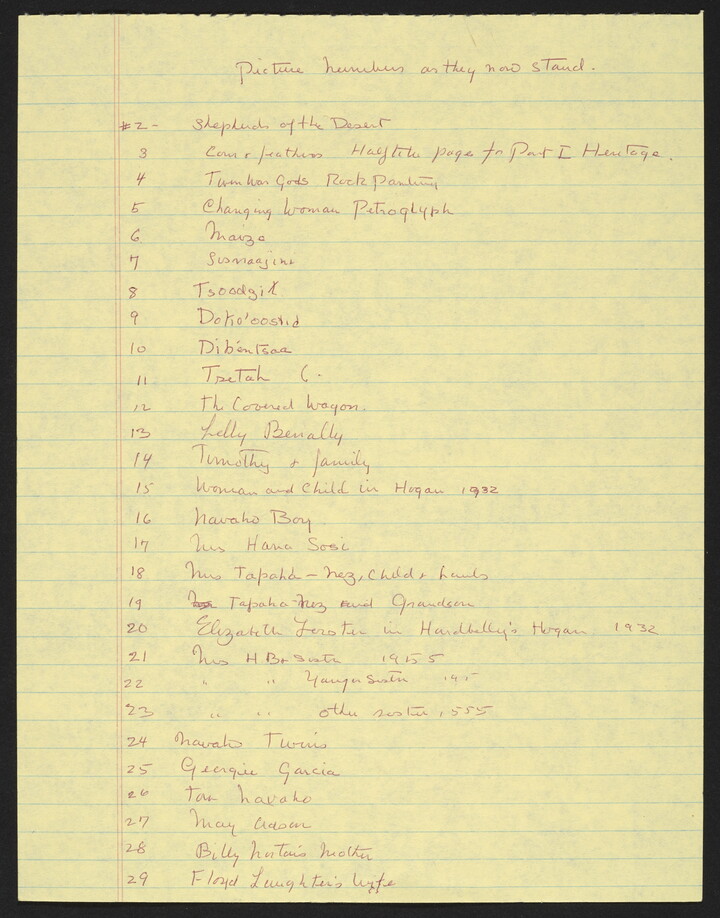 Picture Numbers as they now stand.
#2 - Shepherds of the Desert
3 Corn & feathers Halftitle page for Part I Heritage.
4 Twin War Gods Rock Painting
5 Changing Woman Petroglyph
6 Maize
7 Sisnaajini
8 Tsoodzil
9 Doko'ooslid
10 Dibentsaa
11 Tsetah
12 The Covered Wagon.
13 Lilly Benally
14 Timothy & family
15 Woman and Child in Hogan 1932
16 Navaho Boy
17 Mrs Hana Sosi
18 Mrs Tapaha-Nez, Child & Lambs
19 Tapaha-Nez and Grandson
20 Elizabeth Forster in Hardbelly's Hogan 1932
21 Mrs H B & Sister 1955
22 " " Younger Sister 195
23 " " other sister 1555
24 Navaho Twins
25 Georgie Garcia
26 Tom Navaho
27 May Adson
28 Billy Norton's Mother
29 Floyd Laughter's Wife